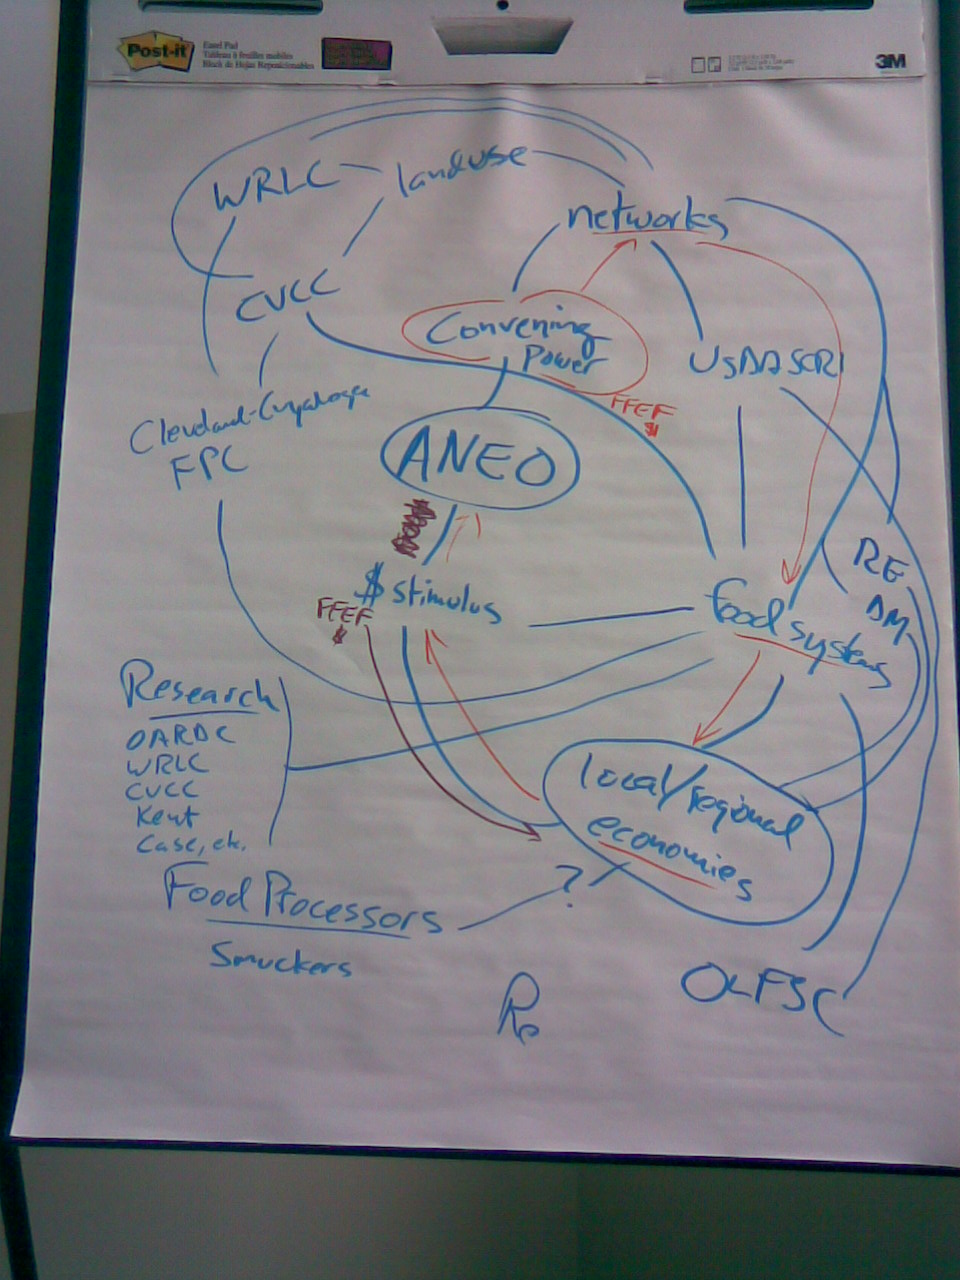 Post-it
Easel Pad
Tableau à feuilles mobiles
Block de Hojas Reposicionables
3M
WRLC
landuse
networks
CVCC
Convening
Power
USDA SCRI
FFEF
$
Cleveland-Cuyahoga
FPC
ANEO
RE
DM
$ stimulus
FFEF
$
food systems
Research
OARDC
WRLC
CVCC
Kent
Case, etc.
local/regional
economies
Food Processors
?
Smuckers
OLFSC